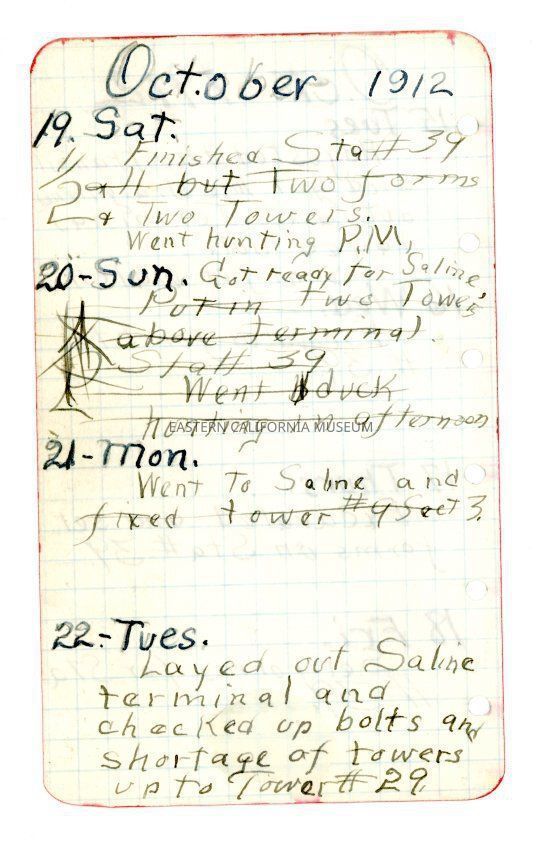 October 1912
19. Sat.
Finished Sta # 39
all but Two forms
& Two Towers.
Went hunting P.M,
20-Sun. Got ready for Saline
Put in two Towers
above terminal.
Sta # 39
Went duck
hunting in afternoon
EASTERN CALIFORNIA MUSEUM
21-Mon.
Went To Saline and
fixed tower #9 Sect 3.
22.-Tues.
Layed out Saline
terminal and
checked up bolts and
shortage of towers
up to Tower # 29.